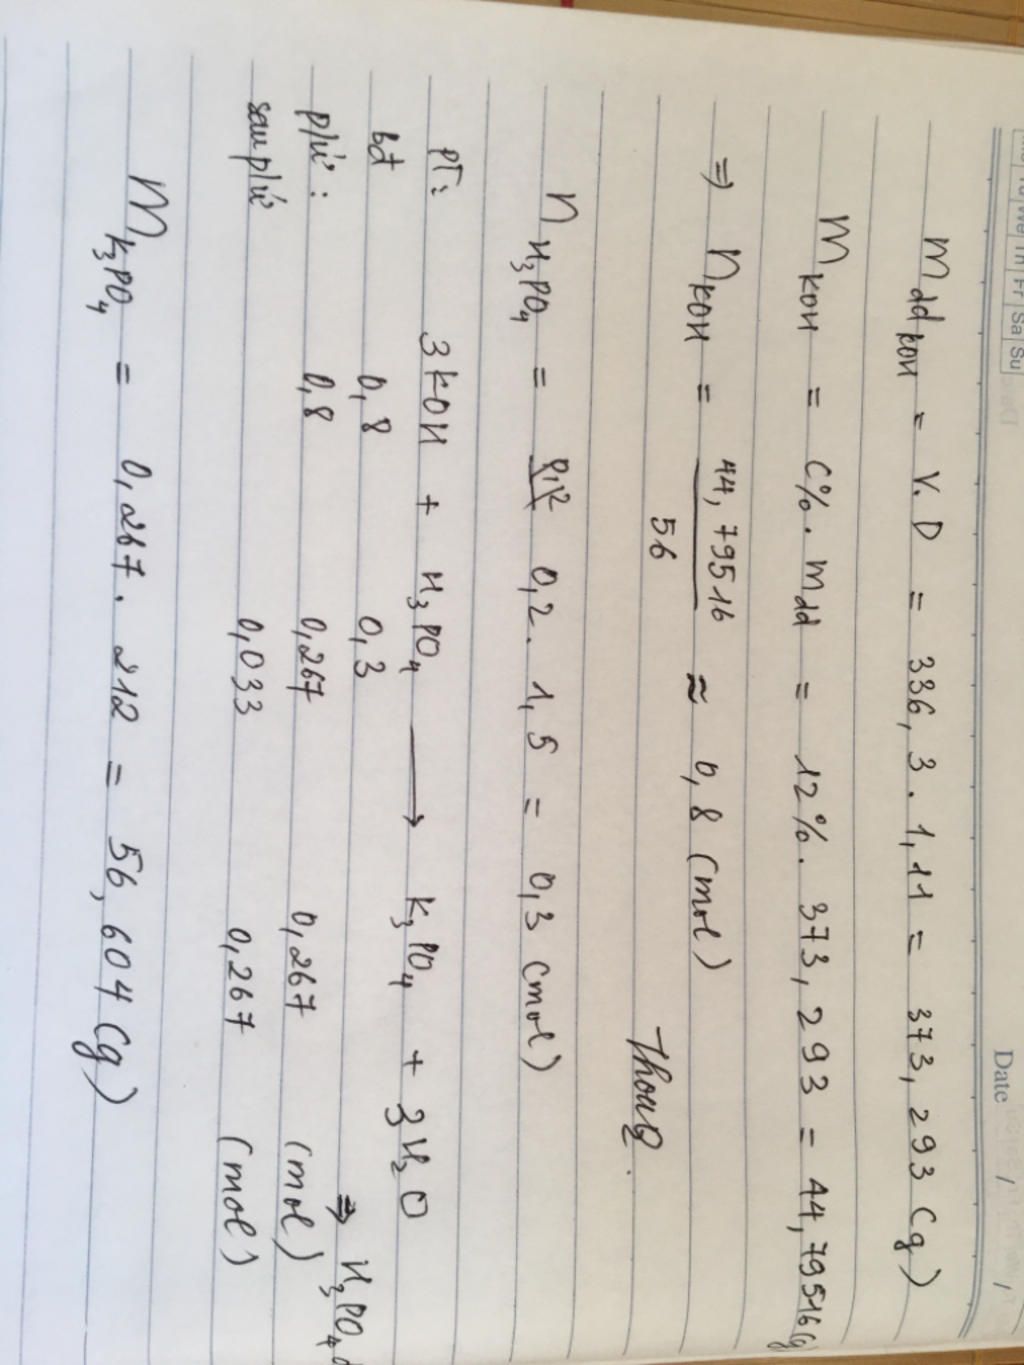 Mo Tu We Th Fr Sa Su
Date / /
m dd KOH = V. D = 336, 3 . 1,11 = 373, 293 (g)
m KOH = C%. m dd = 12%. 373, 293 = 44, 79516 (g)
⇒ n KOH = 44, 79516 / 56 ≈ 0, 8 (mol)
n H3PO4 = 0,2. 1, 5 = 0,3 (mol)
PT: 3 KOH + H3PO4 → K3PO4 + 3 H2O
bđ 0, 8 0, 3 ⇒ H3PO4 d
p/ứ : 0,8 0,267 0,267 (mol)
sau p/ứ 0,033 0,267 (mol)
m K3PO4 = 0, 267. 212 = 56, 604 (g)